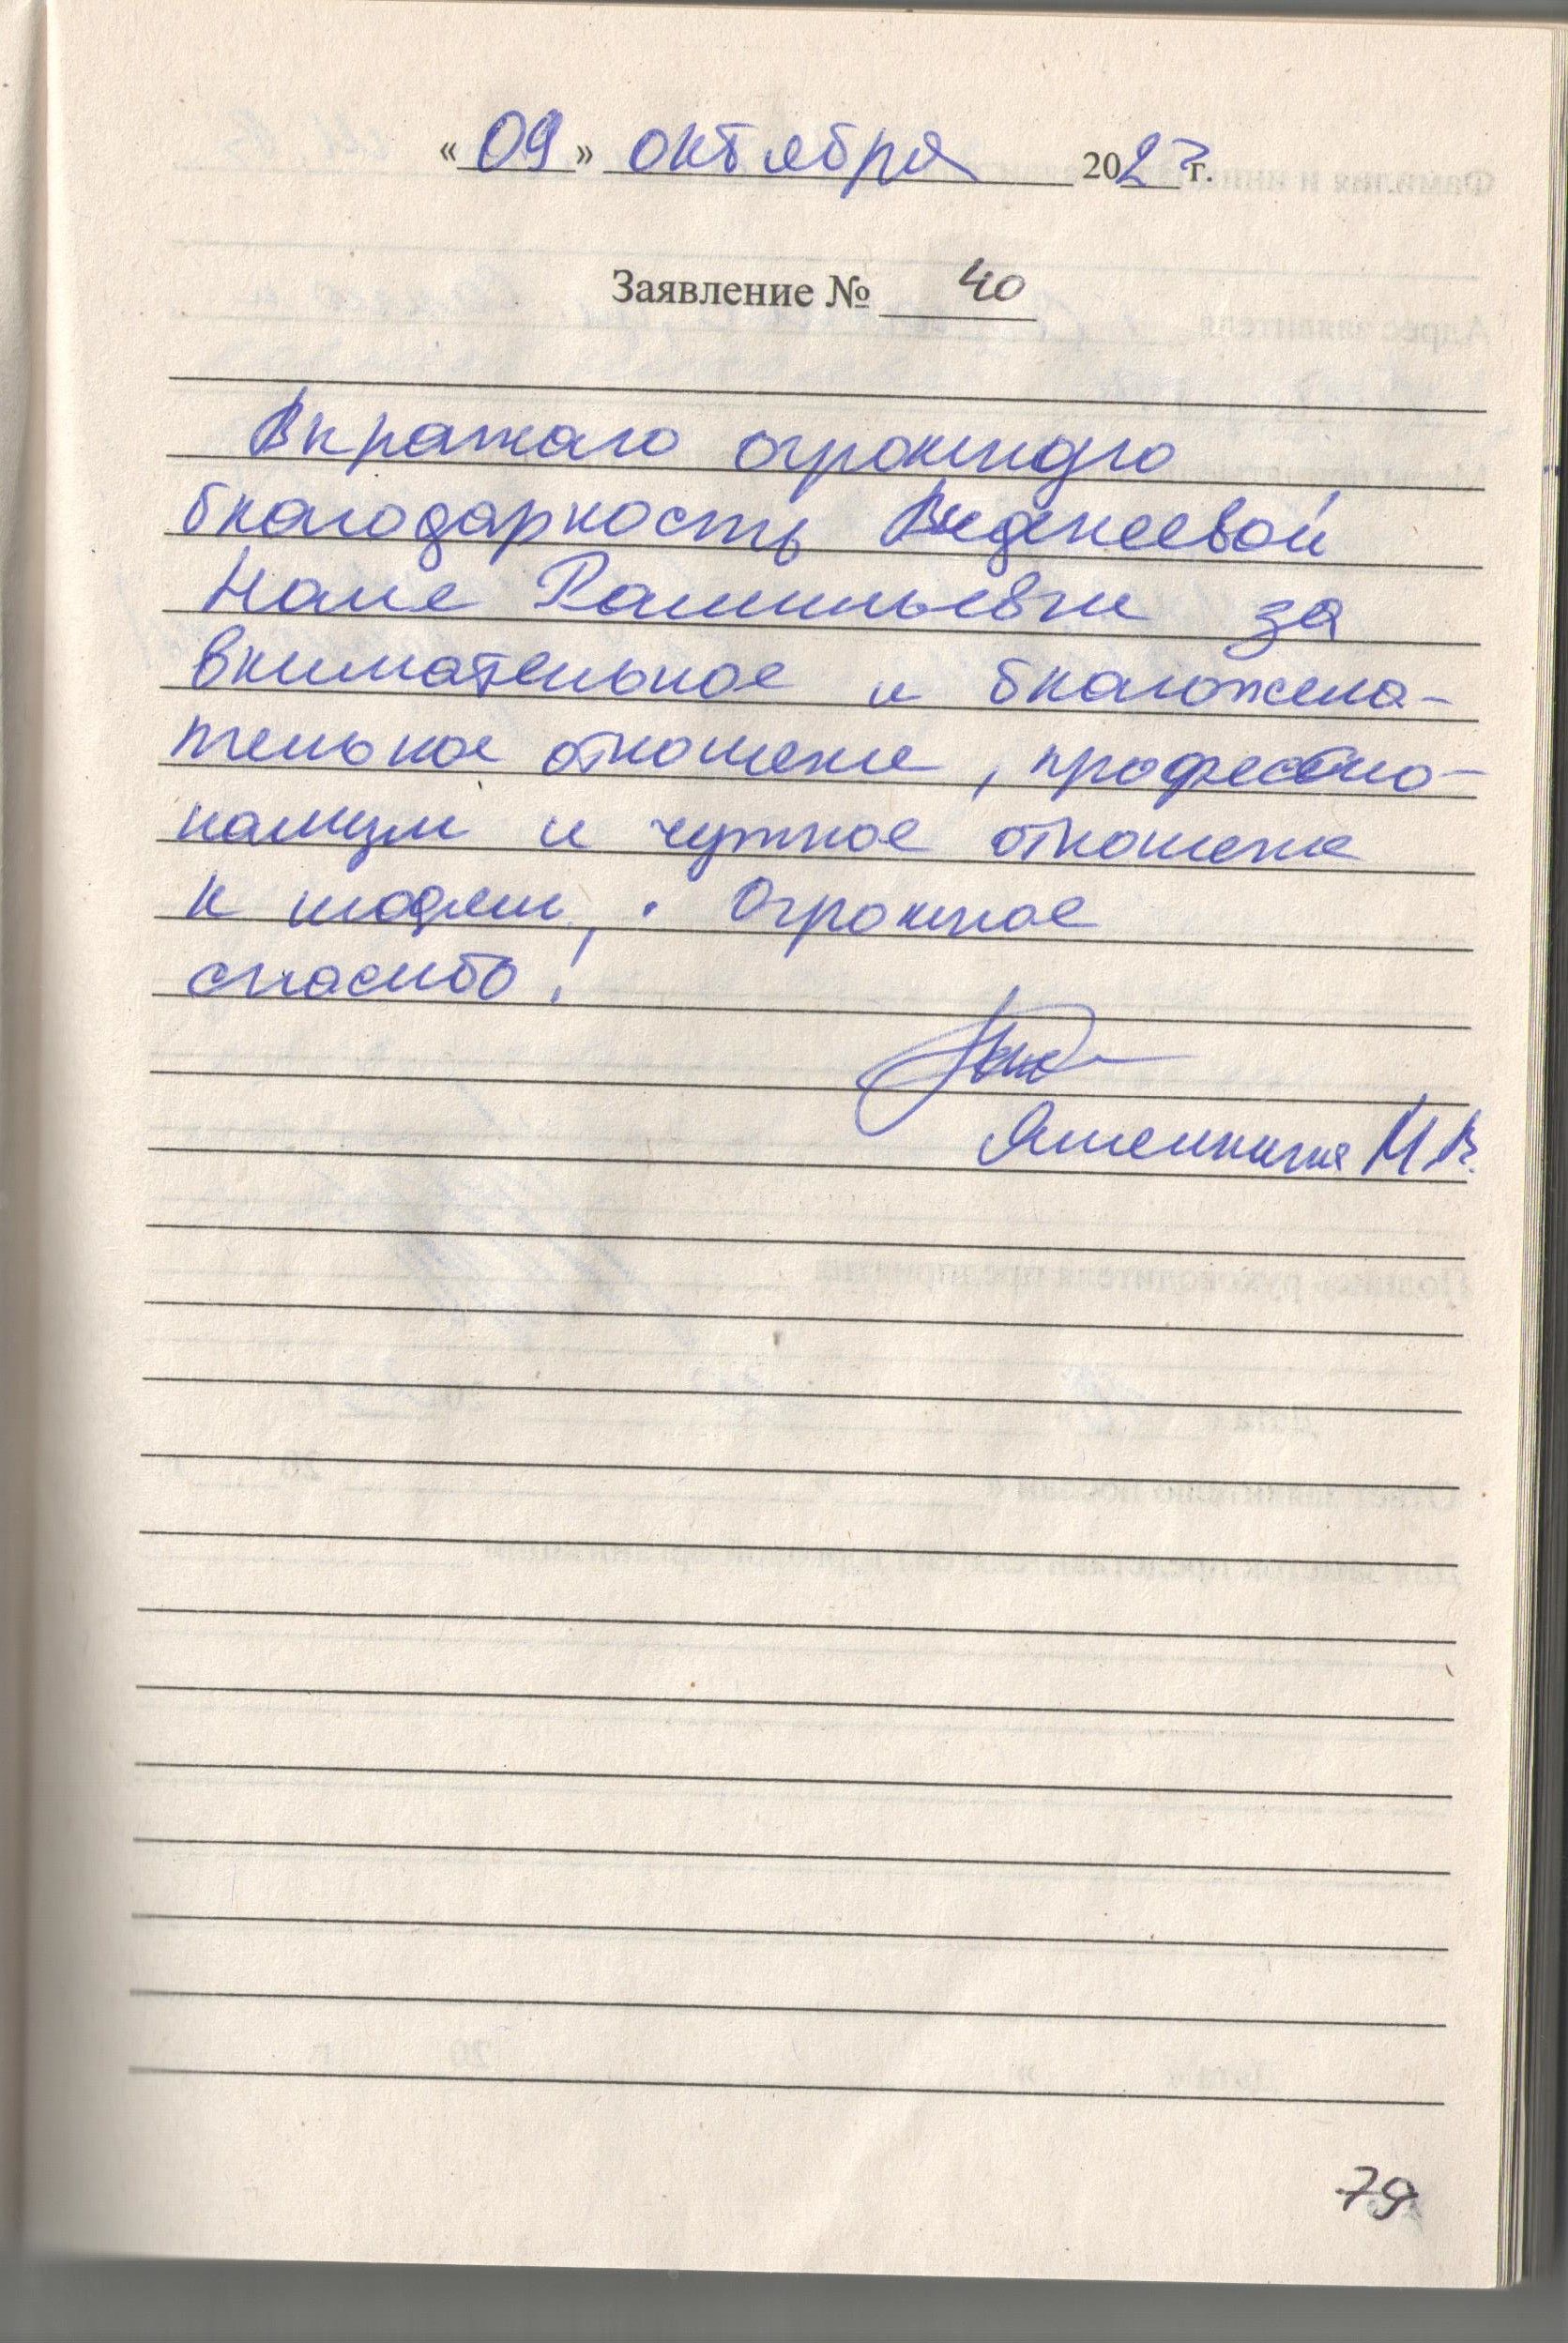 «09» октября 2023 г.
Заявление № 40
Выражаю огромную
благодарность Веденеевой
Наие Рашитьевне за
внимательное и благожела-
тельное отношение, профессио-
нализм и чуткое отношение
к людям, . Огромное
спасибо!
Яшенкина М.В.
79